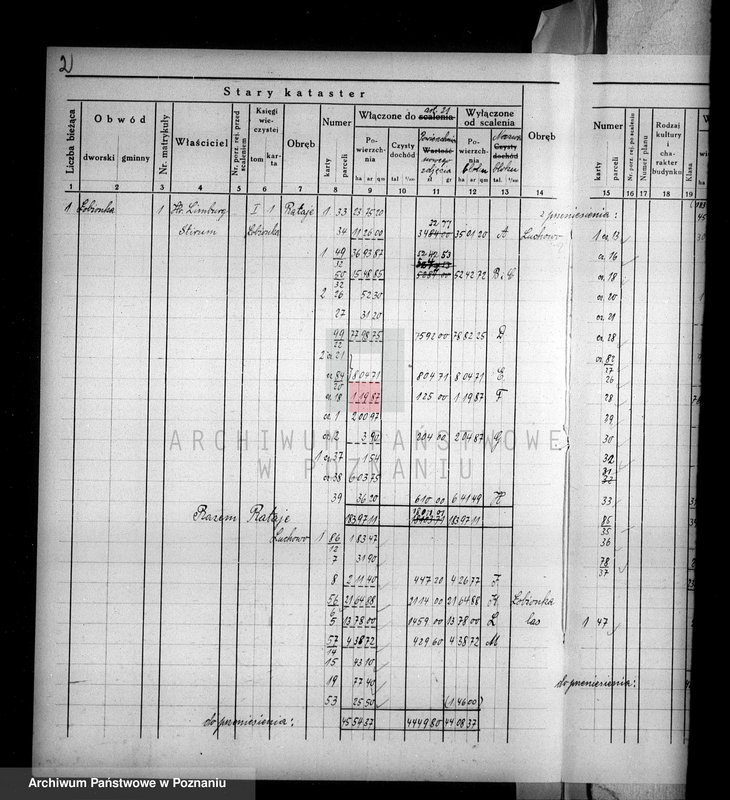 2
Stary kataster
Liczba bieżąca
Obwód
dworski gminny
Nr. matrykuły
Właściciel
Nr. porz. rej. przed scaleniem
Księgi wieczystej
tom karta
Obręb
Numer
karty parceli
Włączone do scalenia
Powierzchnia
ha ar qm
Czysty dochód
tal. 1/100
Wyłączone od scalenia
Powierzchnia
ha ar qm
Czysty dochód
tal. 1/100
Obręb
Numer
karty parceli
Nr. porz. rej. po scaleniu
Numer planu
Rodzaj kultury i charakter budynku
Klasa
1 2 3 4 5 6 7 8 9 10 11 12 13 14 15 16 17 18 19
1 Łobżonka 1 Hr. Limburg I 1 Rataje 1 33 23 75 20
Stirum Łobżonka 34 11 26 00 35 01 20 A Luchowo 1 cz. 13
1 49/32 36 93 87 52 42 53 cz. 16
50/32 15 48 85 52 42 72 B i C cz. 18
2 26 52 30 cz. 20
27 31 20 cz. 21
49/22 77 98 75 7592 00 78 82 25 D cz. 28
2 cz. 21 cz. 82/27
cz. 84/20 8 04 71 804 71 8 04 71 E 26
cz. 18 1 19 87 125 00 1 19 87 F 28
cz. 1 2 00 97 29
cz. 2 3 90 204 00 2 04 87 G 30
1 cz. 37 1 54 32
cz. 38 6 03 75
39 36 20 610 00 6 41 49 H 33
Razem Rataje 183 97 11 183 97 11 85/35
Luchowo 1 86/12 1 83 47 36
7 31 90 78/37
8 2 11 40 447 20 4 26 77 J
56/6 21 64 88 2114 00 21 64 88 K Łobżonka
5 13 78 00 1459 00 13 78 00 L las 1 47
57/14 4 38 72 429 60 4 38 72 M
15 43 10
19 77 40 do przeniesienia:
53 25 50 (14600)
do przeniesienia: 45 54 37 4449 80 44 08 37
z przeniesienia:
ARCHIWUM PAŃSTWOWE
W POZNANIU
Archiwum Państwowe w Poznaniu